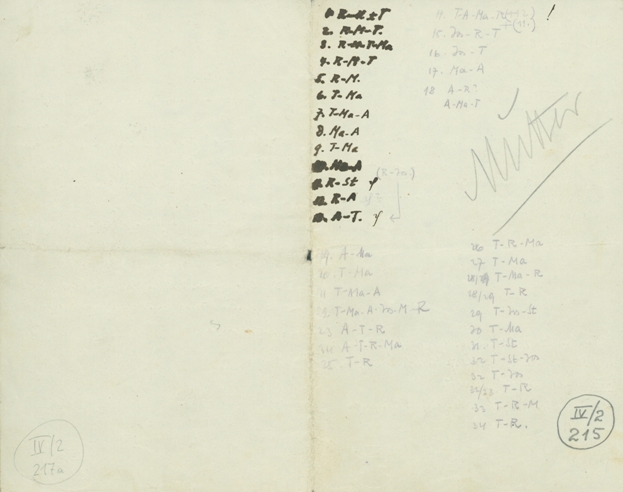 2. R-M-T.
4. R-M-T
5. R-M.
6. T-Ma
7. T-Ma-A
8. Ma-A
9. T-Ma
R-St
R-A
A-T.
(R-Jn.)
15. Jn-R-T
16. Jn-T
17. Ma-A
18 A-R?
A-Ma-T
Mütter
A-Ma
T-Ma
T-Ma-A
T-Ma-A-Jn-M-R
23 A-T-R
A-T-R-Ma
25 T-R
26 T-R-Ma
27 T-Ma
T-Ma-R
28/29 T-R
29 T-Jn-St
30 T-Ma
31 T-St
32 T-St-Jn
32 T-Jn
32/33 T-R
33 T-R-M
34 T-R.
IV/2
215
IV/2
217a